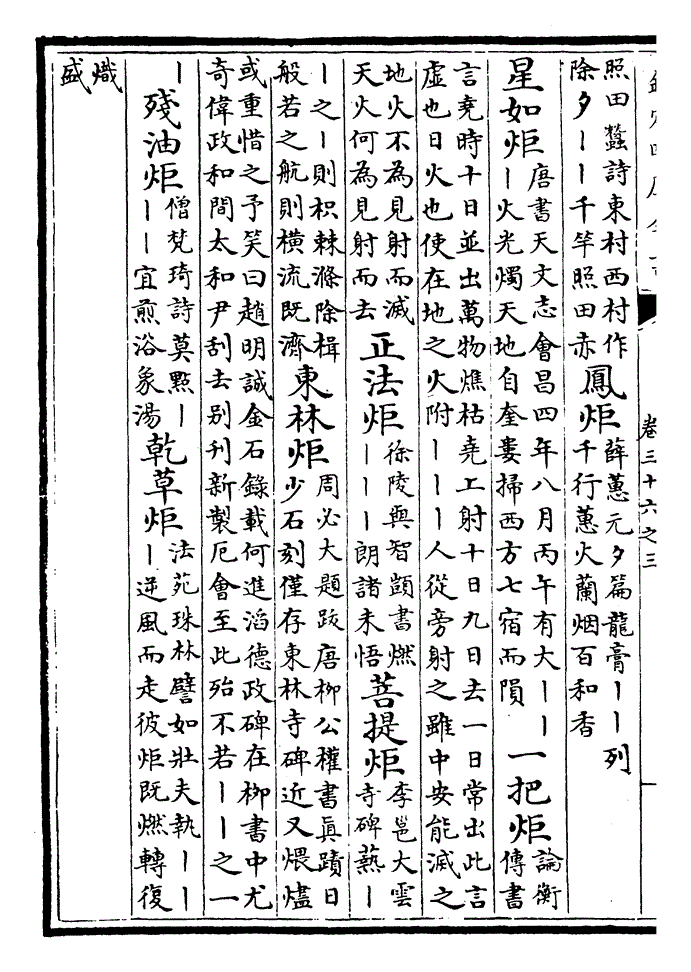 卷三十六之三
照田蠶詩東村西村作
除夕丨丨千竿照田赤
鳳炬
薛蕙元夕篇龍膏丨丨列
千行蕙火蘭烟百和香
星如炬
唐書天文志會昌四年八月丙午有大丨丨
丨火光燭天地自奎婁掃西方七宿而隕
一把炬
論衡
傳書
言堯時十日並出萬物燋枯堯上射十日九日去一日常出此言
虛也日火也使在地之火附丨丨丨人從旁射之雖中安能滅之
地火不為見射而滅
天火何為見射而去
正法炬
徐陵與智顗書燃
丨丨丨朗諸未悟
菩提炬
李邕大雲
寺碑爇丨
丨之丨則枳棘滌除楫
般若之航則橫流既濟
東林炬
周必大題跋唐柳公權書真蹟日
少石刻僅存東林寺碑近又煨燼
或重惜之予笑曰趙明誠金石錄載何進滔德政碑在柳書中尤
奇偉政和間太和尹刮去别刊新製厄會至此殆不若丨丨之一
丨
殘油炬
僧梵琦詩莫㸃丨
丨丨宜煎浴象湯
乾草炬
法苑珠林譬如壯夫執丨丨
丨逆風而走彼炬既燃轉復
熾
盛